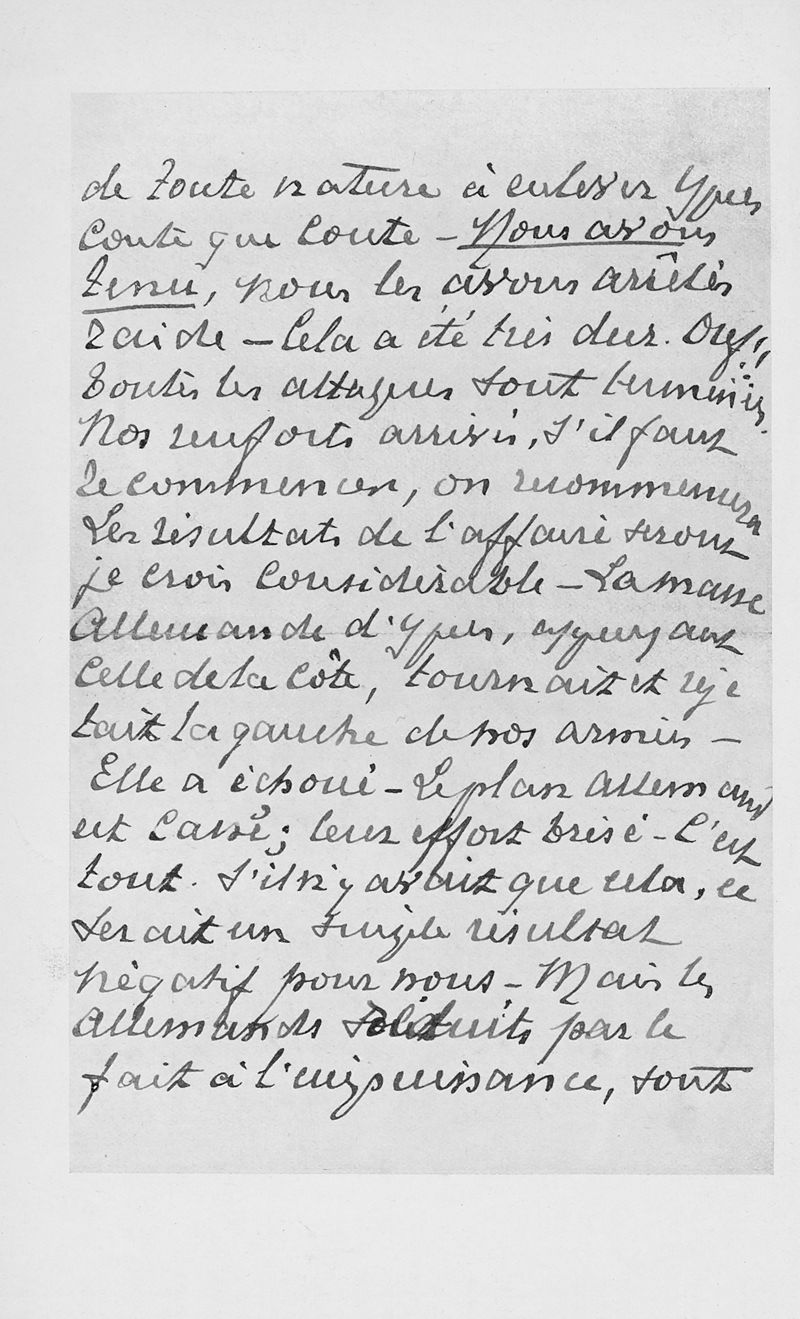 de toute nature à enlever Ypres
coute que coute – Nous avons
tenu, nous les avons arrêtés
raide – Cela a été très dur. Ouf!,
toutes les attaques sont terminées.
Nos renforts arrivés, s'il faut
recommencer, on recommencera
Les résultats de l'affaire seront
je crois considérable – La masse
Allemande d'Ypres, appuyant
celle de la côte, tournait et reje
tait la gauche de nos armées –
Elle a échoué – Le plan allemand
est cassé; leur effort brisé – C'est
tout. S'il n'y avait que cela, ce
serait un simple résultat
négatif pour nous – Mais les
allemands réduits par le
fait à l'impuissance, sont